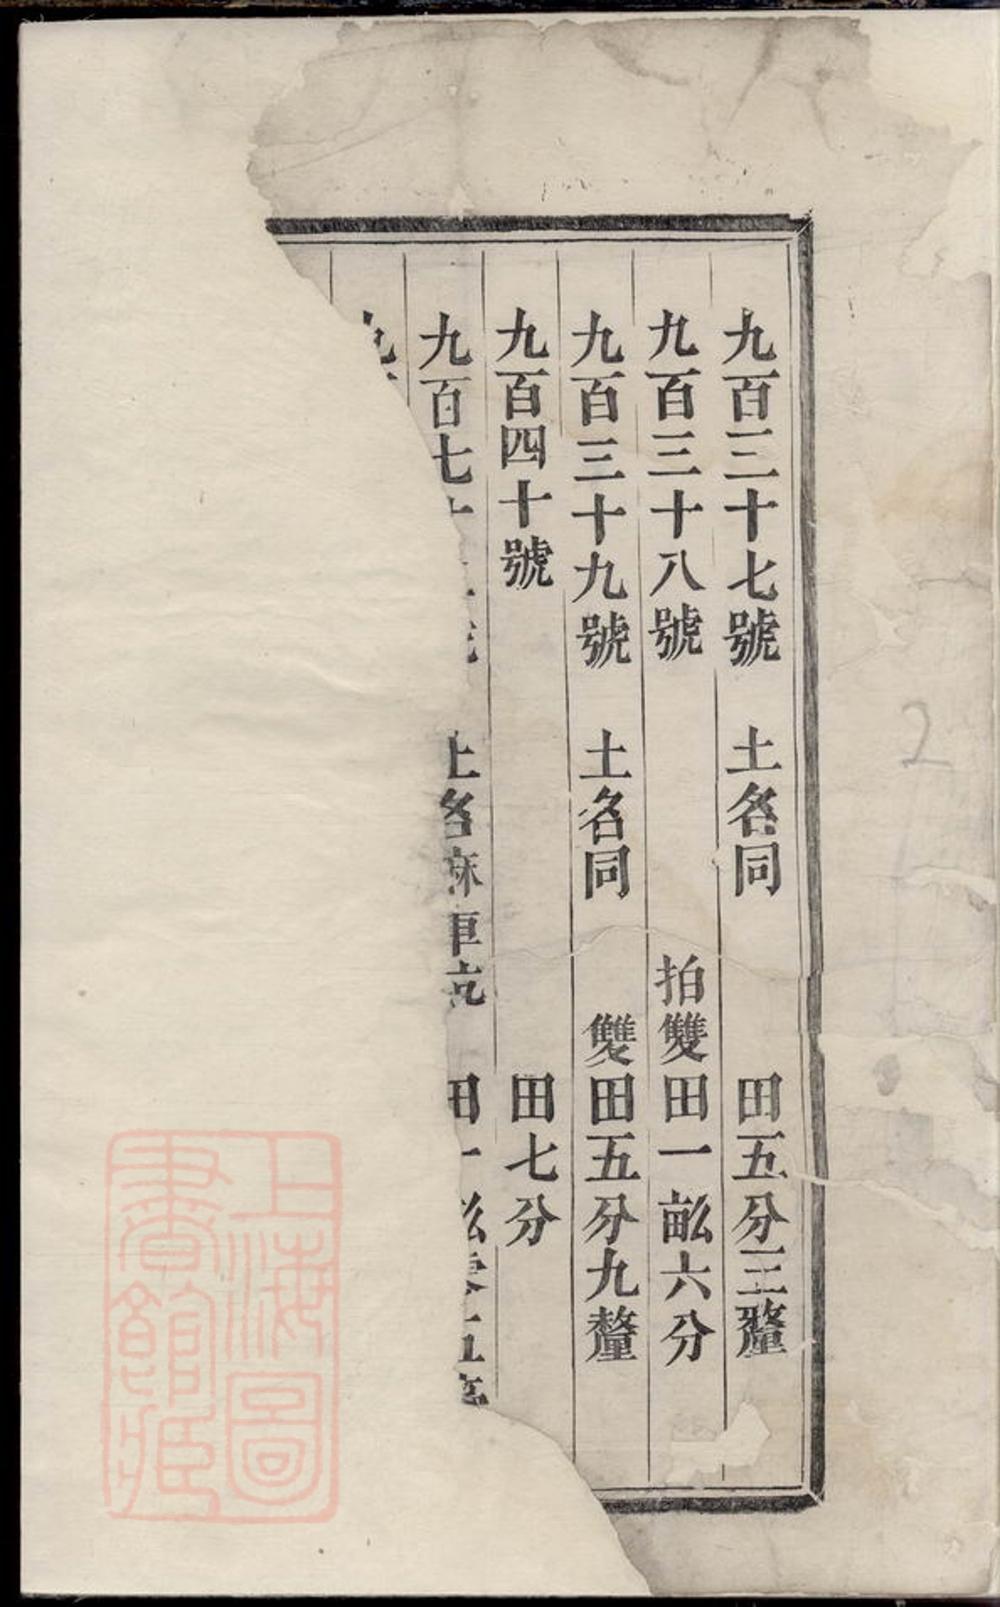 九百三十七號　土名同　田五分三釐
九百三十八號　拍雙田一畝六分
九百三十九號　土名同　雙田五分九釐
九百四十號　田七分
九百七十　土名　車　田一畝零五
九
上海圖書館藏
2